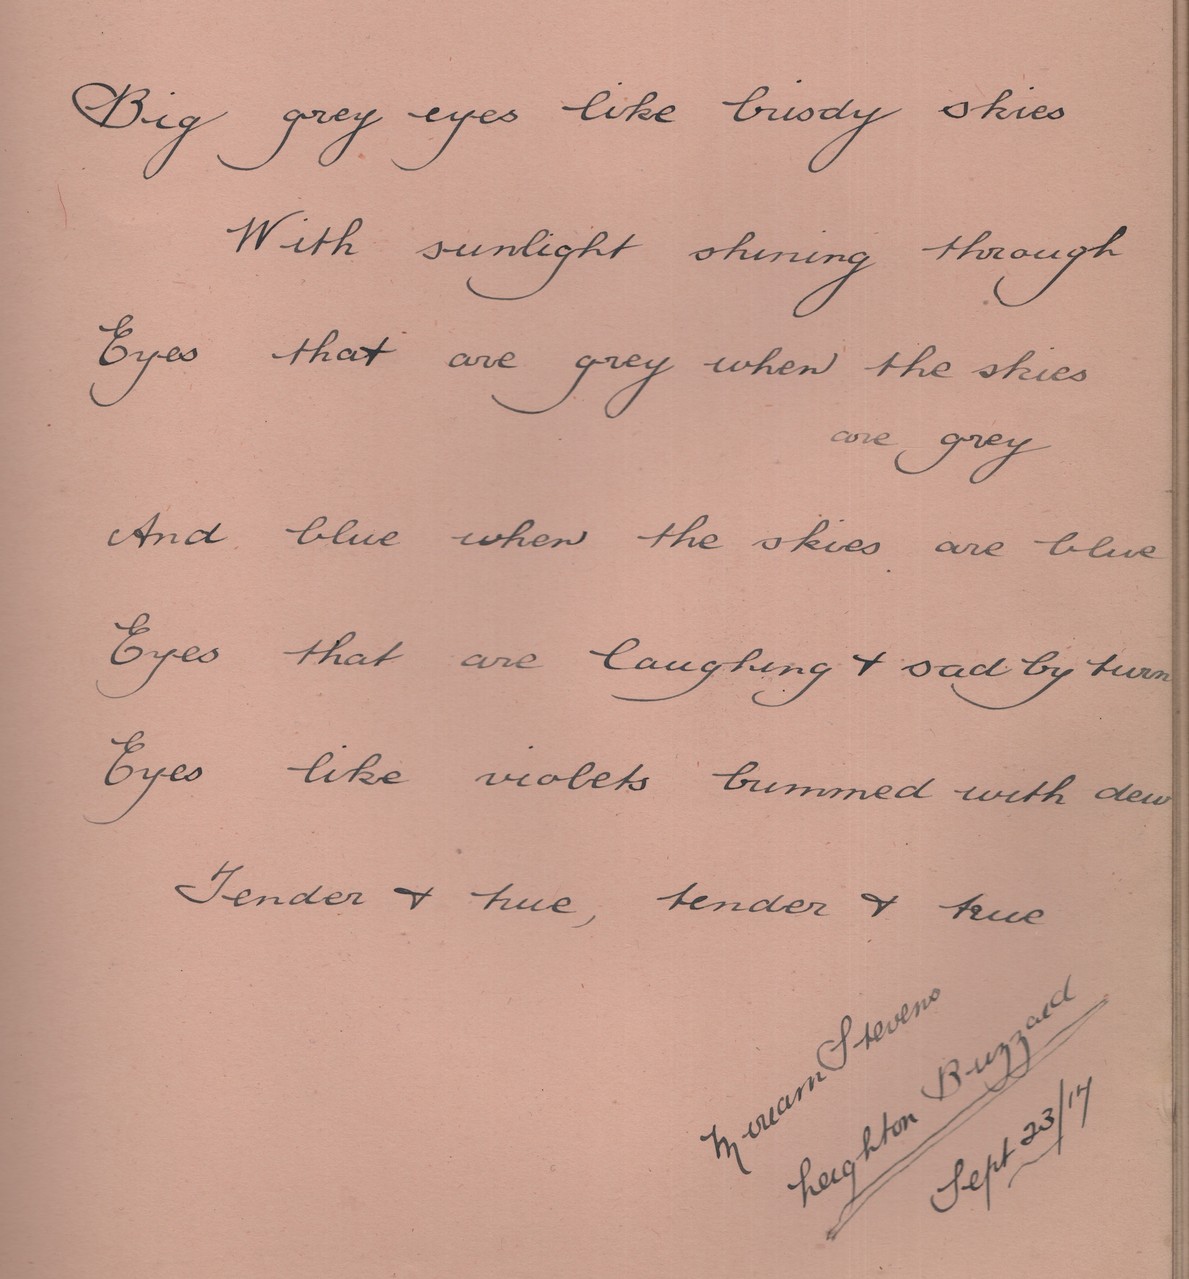 Big grey eyes like brisdy skies
With sunlight shining through
Eyes that are grey when the skies
are grey
And blue when the skies are blue
Eyes that are laughing & sad by turn
Eyes like violets brimmed with dew
Tender & true, tender & true
Miriam Stevens
Leighton Buzzard
Sept 23/17